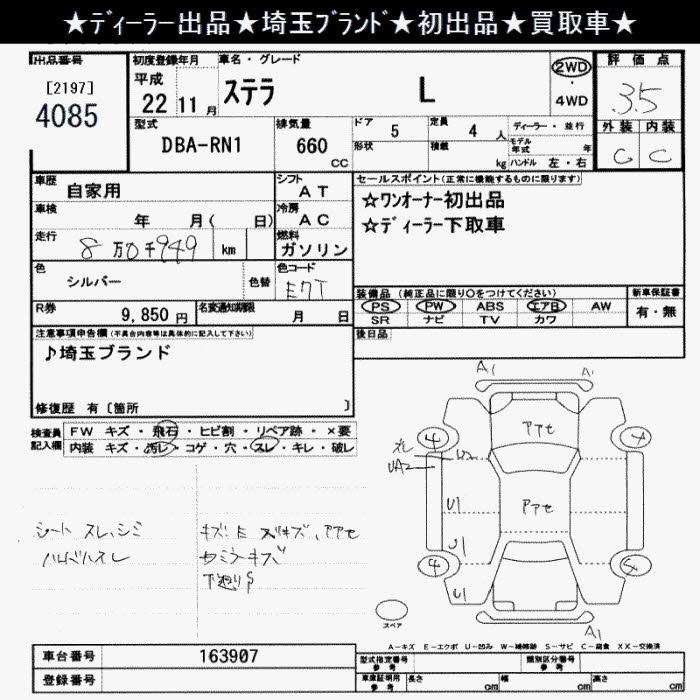 ★ディーラー出品★埼玉ブランド★初出品★買取車★
出品番号
[2197]
4085
初度登録年月
平成
22 11 月
車名・グレード
ステラ L
2WD
・
4WD
評価点
3.5
外装 内装
C C
型式
DBA-RN1
排気量
660 CC
ドア 5
形状
定員 4 人
積載 kg
ディーラー・並行
モデル年式 年
ハンドル 左・右
車歴 自家用
シフト AT
車検 年 月( 日)
冷房 AC
走行 8万0千949 km
燃料 ガソリン
色 シルバー 色替
色コード E7T
R券 9,850円
名変通知期限 月 日
セールスポイント(正常に機能するものに限ります)
☆ワンオーナー初出品
☆ディーラー下取車
装備品 (純正品に限り○をつけてください)
PS PW ABS エアB AW
SR ナビ TV カワ
新車保証書
有・無
後日品
注意事項申告欄(不具合内容等は具体的に記入して下さい)
♪埼玉ブランド
修復歴 有〔箇所 〕
検査員記入欄
FW キズ・飛石・ヒビ割・リペア跡・×要
内装 キズ・汚レ・コゲ・穴・スレ・キレ・破レ
シート スレ、シミ
キズ、アアセ
下廻りS
A1
A1
アアセ
4
4
スレ
UA2
U2
U1
アアセ
U1
4
5
U1
A1
スペア
A-キズ E-エクボ U-凹み W-補修跡 S-サビ C-腐食 XX-交換済
車台番号 163907
登録番号
型式指定番号
参考
類別区分番号
参考
車庫証明用
参考
長さ cm
幅 cm
高さ cm